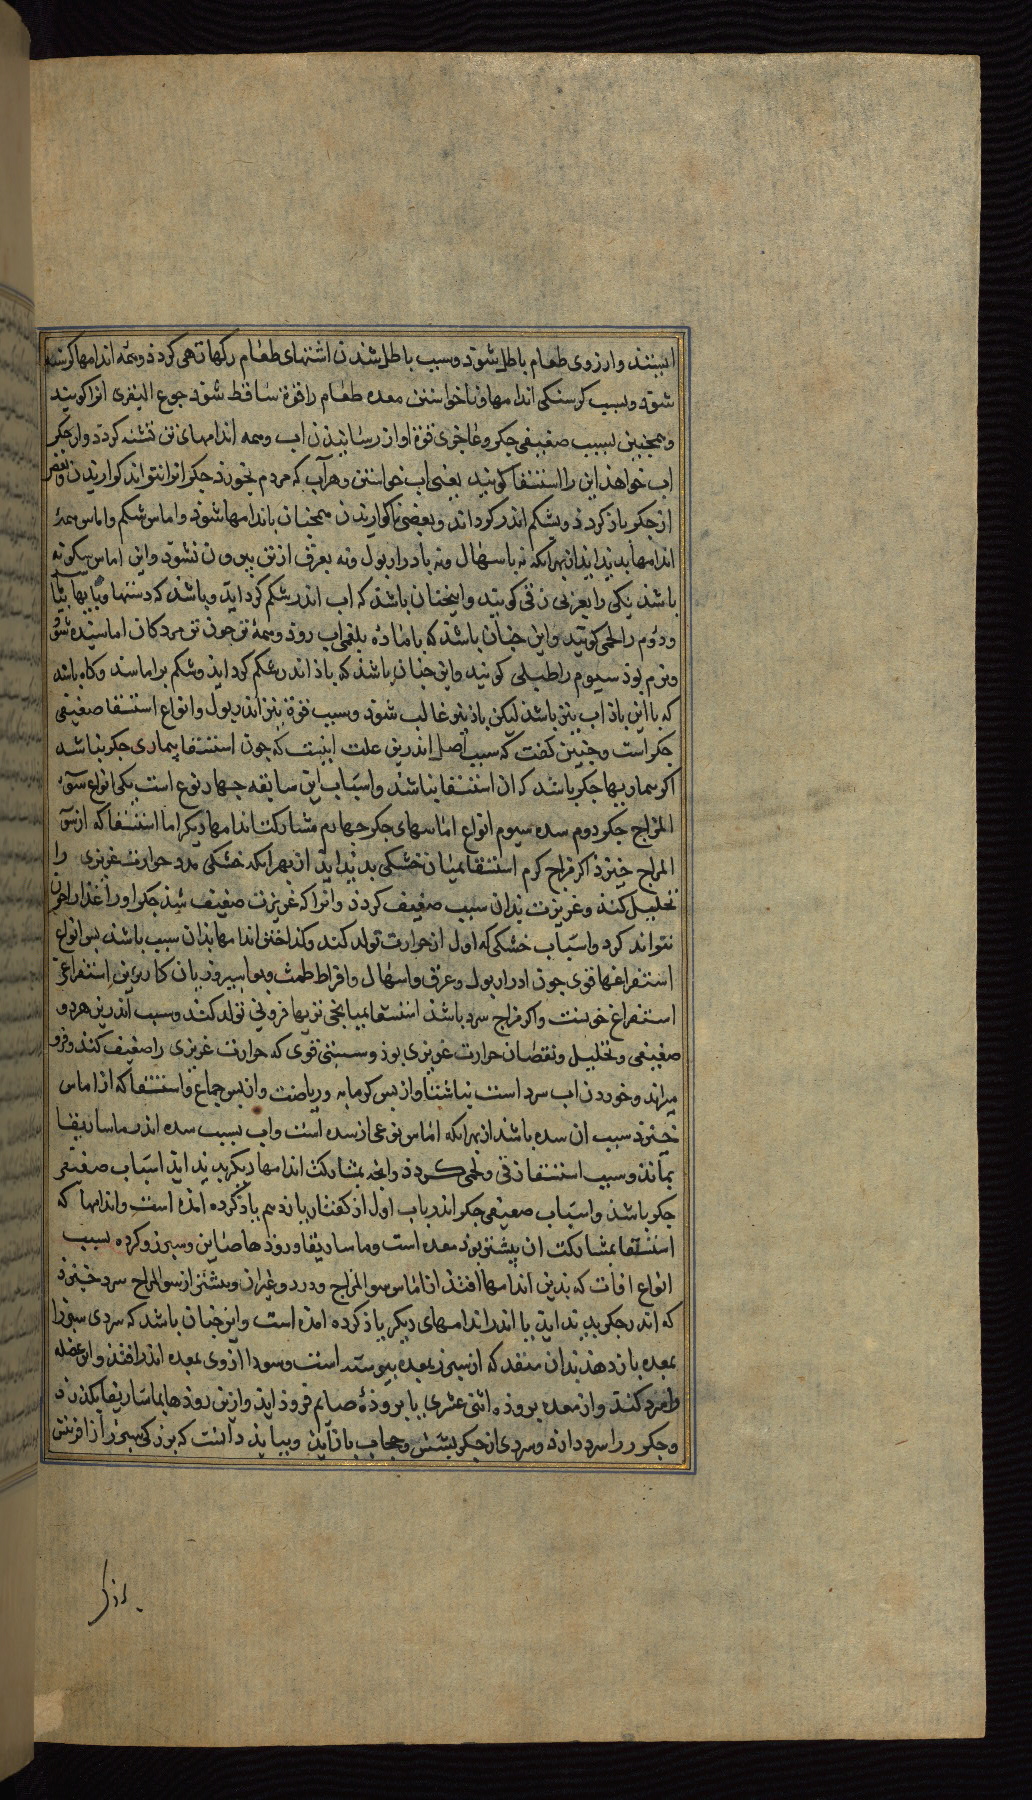 ایستند وارزوی طعام باطل شود وسبب باطل شدن اشتهای طعام رکها تهی کردد وهمه اندامها کرسنه
شود وبسبب کرسنکی اندامها وناخواستن معده طعام را قوة ساقط شود جوع البقری انرا کویند
وهمچنین بسبب ضعیفی جکر وعاجزی قوة او از رسانیدن اب وهمه اندامهای تن تشنه کردد واز جکر
اب خواهد این را استسقا کویند یعنی اب خواستن وهر آب که مردم بخورد جکر انرا نتواند کواریدن وبعضی
از جکر باز کردد وبشکم اندر کرداند وبعضی ناکواریدن همچنان باندامها شود واماس شکم واماس همهٔ
اندامها بدید اید از بهر انکه نه باسهال ونه بادرار بول ونه بعرق از تن بیرون نشود واین اماس سکونه
باشد یکی را بعربی زقی کویند واینچنان باشد که اب اندر شکم کرد اید وباشد که دستها وپایها
ودوم را لحمی کویند واین چنان باشد که با ماده بلغمی اب رود وهمهٔ تن چون تن مردکان اماسیده شود
ونرم بود سیوم را طبلی کویند واین چنان باشد که باد اندر شکم کرد اید وشکم براماسد وکاه باشد
که با این باد اب نیز باشد لیکن باد نیز غالب شود وسبب قوة نیز اندر بول وانواع استسقا ضعیفی
جکر است وچنین کفت که سبب اصل اندرین علت اینست که چون استسقا بیماری جکر نباشد
اکر بیماریها جکر باشد که ان استسقا نباشد واسباب این سابقه چهار نوع است یکی انواع سوء
المزاج جکر دوم سده سیوم انواع اماسهای جکر چهارم مشارکت اندامها دیکر اما استسقا که از سوء
المزاج خیزد اکر مزاج کرم استسقا بمیان خشکی بدید اید از بهر انکه خشکی مدد حرارت غریزی را
تحلیل کند وغریزت بدان سبب ضعیف کردد وانرا که غریزت ضعیف شد جکر او را غذا را خون
نتواند کرد واسباب خشکی که اول از حرارت تولد کند وکداختن اندامها بدان سبب باشد پس انواع
استفراغها قوی چون ادرار بول وعرق واسهال وافراط طمث وبواسیر وزیان کارترین استفراغی
استفراغ خونست واکر مزاج سرد باشد استسقا بمیانجی تریها فزونی تولد کند وسبب اندرین هر دو
ضعیفی وتحلیل ونقصان حرارت غریزی بود وسستی قوی که حرارت غریزی را ضعیف کند وفرو
میراند وخوردن اب سرد است بناشتا واز پس کرمابه وریاضت واز پس جماع واستسقا که از اماس
خیزد سبب ان سده باشد از بهر انکه اماس نوعی از سده است واب بسبب سده اندر ماساریقا
بماند وسبب استسقا زقی ولحمی کردد وانچه بمشارکت اندامها دیکر بدید اید اسباب ضعیفی
جکر باشد واسباب ضعیفی جکر اندر باب اول از کفتار یازدهم یاد کرده امده است واندامها که
استسقا بمشارکت ان بیشتر بود معده است وماساریقا وروذها صاین وسبرز وکرده بسبب
انواع افات که بدین اندامها افتد از اماس سو المزاج ودرد وغیر ان وبیشتر از سو المزاج سرد خیزد
که اندر جکر بدید اید یا اندر اندامهای دیکر یاد کرده امده است واین چنان باشد که سردی سبرز را
بمعده باز دهد بدان منفذ که از سبرز بمعده پیوسته است وسودا ازوی بمعده اندر افتد واین عضله
را سرد کند واز معده برودهٔ اثنی عشری یا برودهٔ صایم فرود اید وازین روذها بماساریقا بکذرد
وجکر را سرد دارد وسردی از جکر بشش وحجاب باز آید وبباید دانست که بزرکی سبرز از افزیش